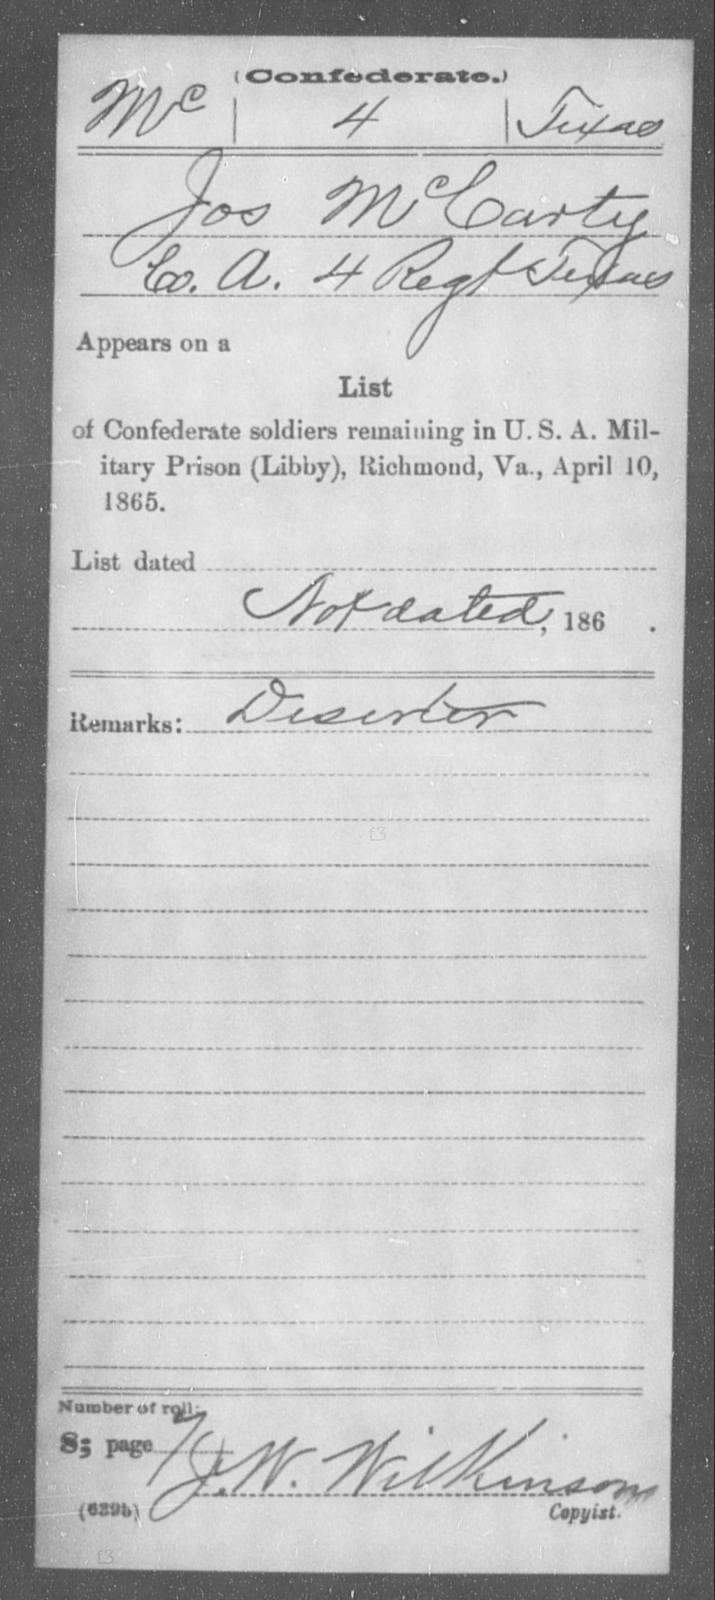 (Confederate.)
Mc | 4 | Texas
Jos McCarty
Co. A. 4 Regt Texas
Appears on a
List
of Confederate soldiers remaining in U. S. A. Mil-
itary Prison (Libby), Richmond, Va., April 10,
1865.
List dated
Not dated, 186 .
Remarks: Deserter
Number of roll:
8; page 7
J. W. Wilkinson
(639b) Copyist.